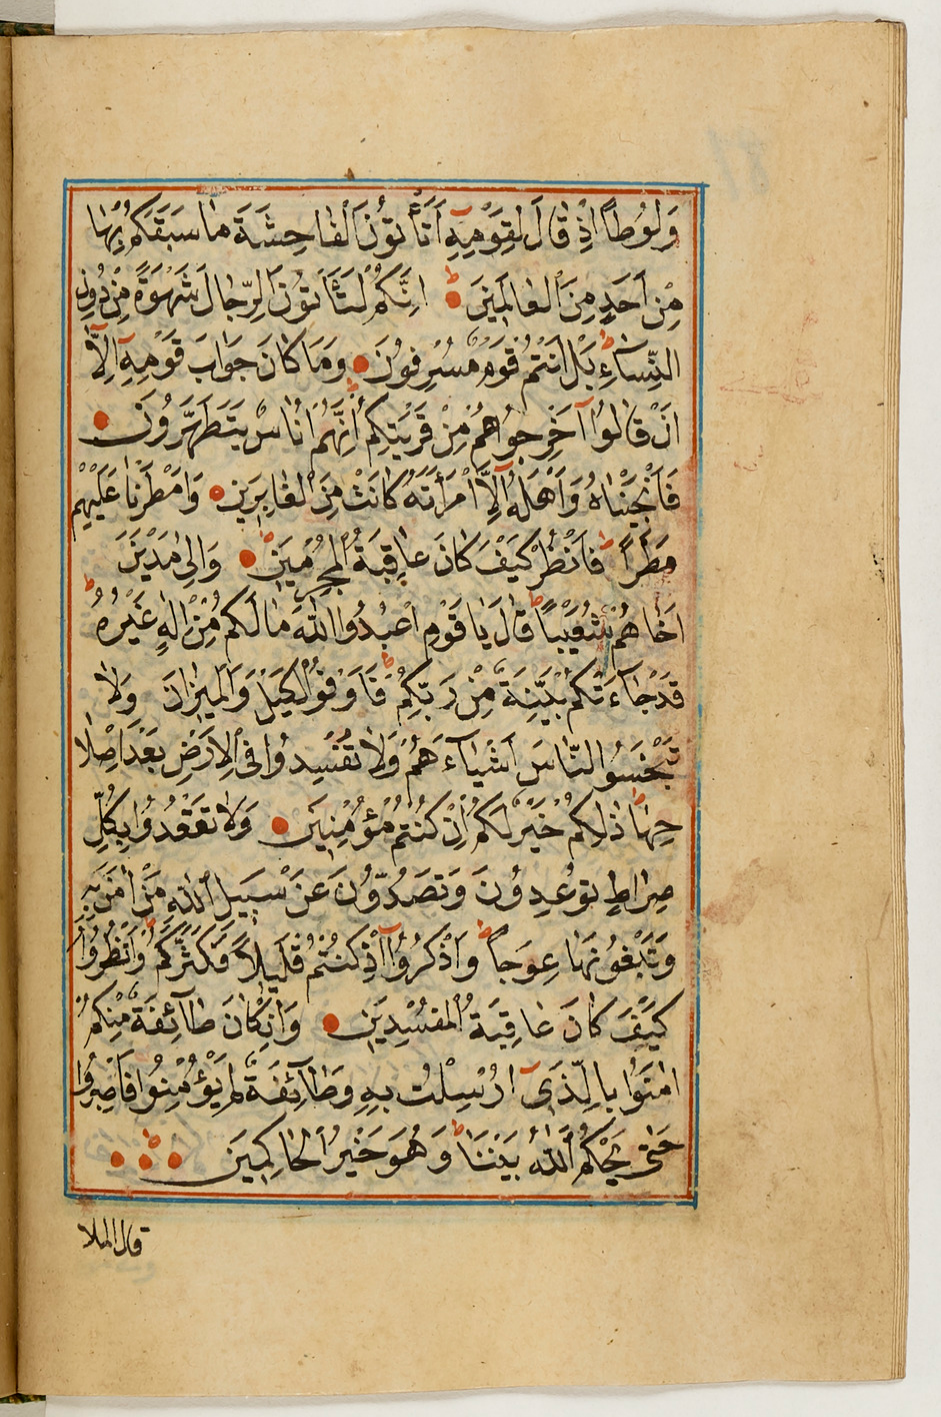 وَلُوطاً اِذْ قَالَ لِقَوْمِهِٓ اَتَأْتُونَ الْفَاحِشَةَ مَا سَبَقَكُمْ بِهَا
مِنْ اَحَدٍ مِنَ الْعَالَمِينَ اِنَّكُمْ لَتَأْتُونَ الرِّجَالَ شَهْوَةً مِنْ دُونِ
النِّسَآءِ بَلْ اَنْتُمْ قَوْمٌ مُسْرِفُونَ وَمَا كَانَ جَوَابَ قَوْمِهِٓ اِلَّٓا
اَنْ قَالُوٓا اَخْرِجُوهُمْ مِنْ قَرْيَتِكُمْ اِنَّهُمْ اُنَاسٌ يَتَطَهَّرُونَ
فَاَنْجَيْنَاهُ وَاَهْلَهُٓ اِلَّا امْرَاَتَهُ كَانَتْ مِنَ الْغَابِرِينَ وَاَمْطَرْنَا عَلَيْهِمْ
مَطَراً فَانْظُرْ كَيْفَ كَانَ عَاقِبَةُ الْمُجْرِمِينَ وَاِلٰى مَدْيَنَ
اَخَاهُمْ شُعَيْباً قَالَ يَا قَوْمِ اعْبُدُوا اللّٰهَ مَا لَكُمْ مِنْ اِلٰهٍ غَيْرُهُ
قَدْ جَآءَتْكُمْ بَيِّنَةٌ مِنْ رَبِّكُمْ فَاَوْفُوا الْكَيْلَ وَالْمِيزَانَ وَلَا
تَبْخَسُوا النَّاسَ اَشْيَآءَهُمْ وَلَا تُفْسِدُوا فِى الْاَرْضِ بَعْدَ اِصْلَا
حِهَا ذٰلِكُمْ خَيْرٌ لَكُمْ اِنْ كُنْتُمْ مُؤْمِنِينَ وَلَا تَقْعُدُوا بِكُلِّ
صِرَاطٍ تُوعِدُونَ وَتَصُدُّونَ عَنْ سَبِيلِ اللّٰهِ مَنْ اٰمَنَ بِهِ
وَتَبْغُونَهَا عِوَجاً وَاذْكُرُوٓا اِذْ كُنْتُمْ قَلِيلاً فَكَثَّرَكُمْ وَانْظُرُوا
كَيْفَ كَانَ عَاقِبَةُ الْمُفْسِدِينَ وَاِنْ كَانَ طَآئِفَةٌ مِنْكُمْ
اٰمَنُوا بِالَّذِٓى اُرْسِلْتُ بِهِ وَطَآئِفَةٌ لَمْ يُؤْمِنُوا فَاصْبِرُوا
حَتّٰى يَحْكُمَ اللّٰهُ بَيْنَنَا وَهُوَ خَيْرُ الْحَاكِمِينَ
قال الملا